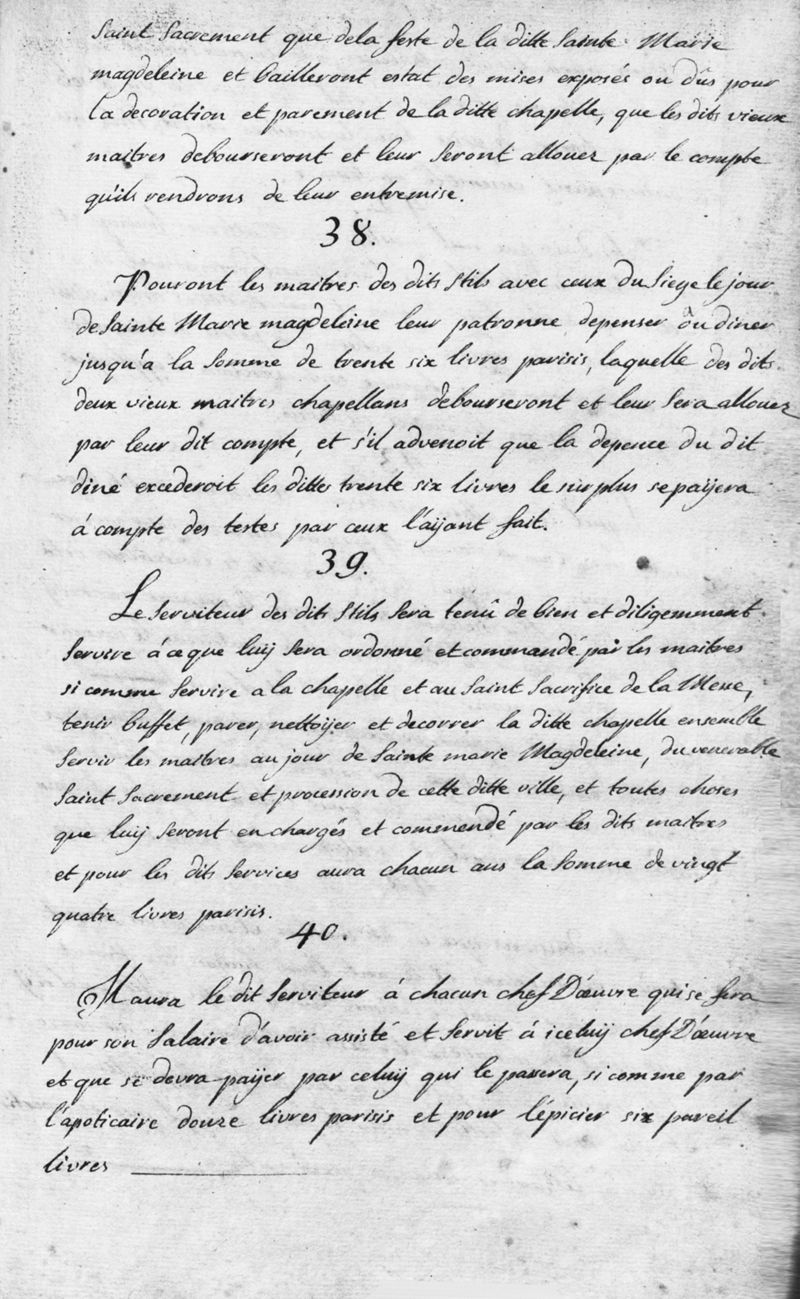 Saint Sacrement que dela feste de la ditte Sainte Marie
magdeleine et bailleront estat des mises exposés ou dûs pour
la decoration et parement de la ditte chapelle, que les dits vieux
maitres debourseront et leur seront allouez par le compte
qu'ils rendrons de leur entremise.
38.
Pouront les maitres des dits stils avec ceux du siege le jour
de Sainte Marie magdeleine leur patronne depenser ou diner
jusqu'a la somme de trente six livres parisis, laquelle des dits
deux vieux maitres chapellans debourseront et leur sera allouez
par leur dit compte, et s'il advenoit que la depence du dit
diné excederoit les dittes trente six livres le surplus se paijera
á compte des testes par ceux l'aijant fait.
39.
Le serviteur des dits stils sera tenû de bien et diligemment
servire á ce que luij sera ordonné et commandé par les maitres
si comme servire a la chapelle et au saint sacrifice de la Messe,
tenir buffet, parer, nettoijer et decorrer la ditte chapelle ensemble
servir les maitres au jour de Sainte marie Magdeleine, du venerable
saint sacrement et procession de cette ditte ville, et toutes choses
que luij seront en chargés et commendé par les dits maitres
et pour les dits services aura chacun ans la somme de vingt
quatre livres parisis.
40.
Il aura le dit serviteur á chacun chef D'œuvre qui se fera
pour son salaire d'avoir assisté et servit á iceluij chef D'œuvre
et que se devra paijer par celuij qui le passera, si comme par
l'apoticaire douze livres parisis et pour l'épicier six pareil
livres